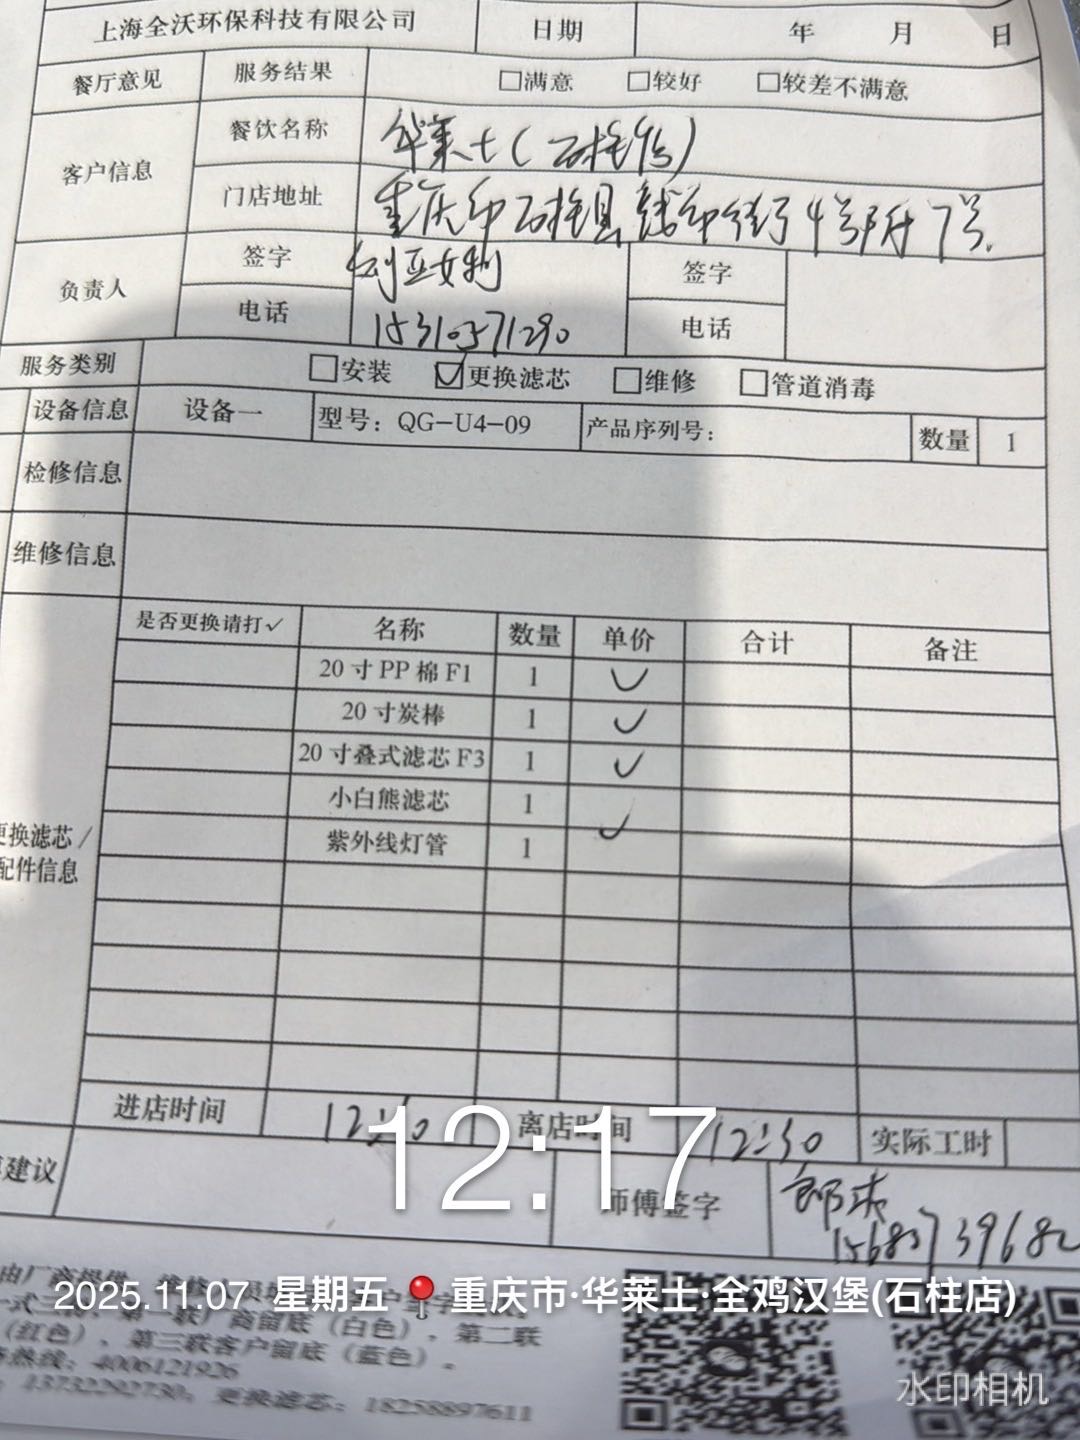 上海全沃环保科技有限公司 日期 年 月 日
餐厅意见 服务结果 □满意 □较好 □较差不满意
客户信息 餐饮名称 华莱士(石柱店)
门店地址 重庆市石柱县 街 4号附7号.
负责人 签字 签字
电话 15310571290 电话
服务类别 □安装 ☑更换滤芯 □维修 □管道消毒
设备信息 设备一 型号：QG-U4-09 产品序列号： 数量 1
检修信息
维修信息
是否更换请打✓ 名称 数量 单价 合计 备注
20寸PP棉F1 1 ✓
20寸炭棒 1 ✓
20寸叠式滤芯F3 1 ✓
小白熊滤芯 1 ✓
紫外线灯管 1
更换滤芯/
配件信息
进店时间 离店时间 12:30 实际工时
建议 师傅签字
12:17
2025.11.07 星期五 重庆市·华莱士·全鸡汉堡(石柱店)
一式 第一联厂商留底（白色），第二联
（红色），第三联客户留底（蓝色）。
热线：4006121926
13732292730；更换滤芯：18258897611
水印相机